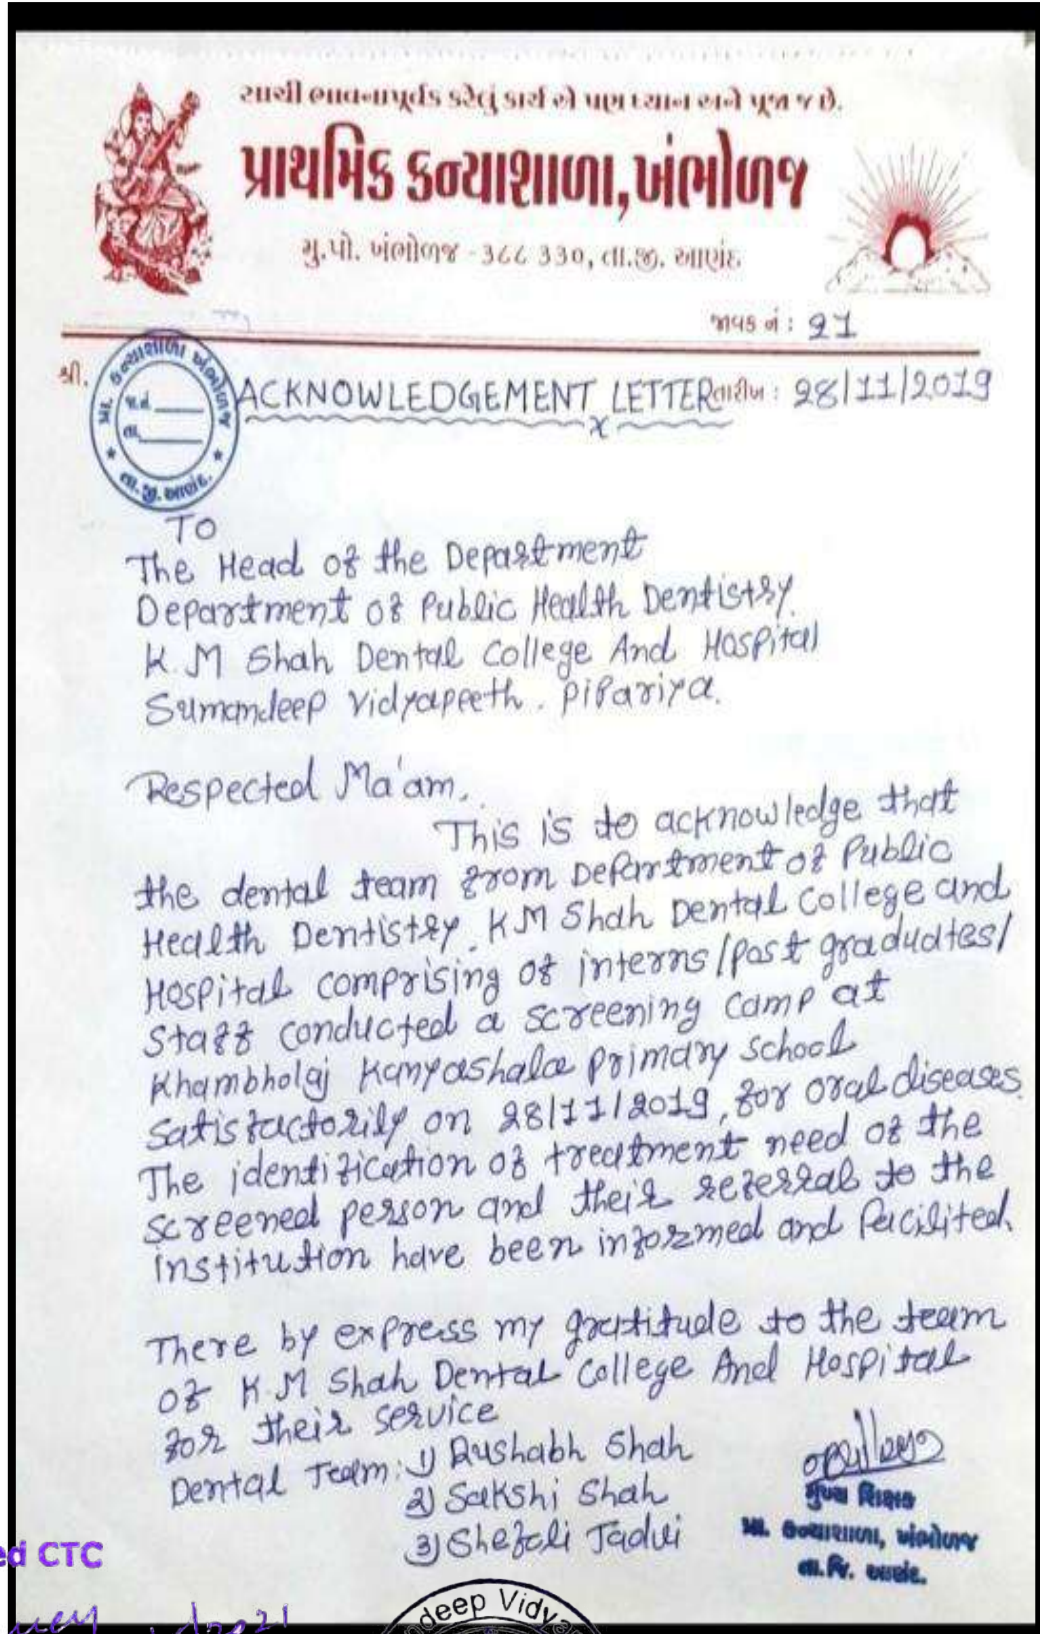 સાચી ભાવનાપૂર્વક કરેલું કાર્ય એ પણ ધ્યાન અને પૂજા જ છે.
પ્રાથમિક કન્યાશાળા, ખંભોળજ
મુ.પો. ખંભોળજ - ૩૮૮ ૩૩૦, તા.જી. આણંદ
જાવક નં : 21
શ્રી.
પ્રા. કન્યાશાળા ખંભોળજ
જા.નં.
તા.
તા.જી. આણંદ.
ACKNOWLEDGEMENT LETTER તારીખ : 28/11/2019
TO
The Head of the Department
Department of Public Health Dentistry.
K.M Shah Dental College And Hospital
Sumandeep Vidyapeeth. Pipariya.
Respected Ma'am,
This is to acknowledge that
the dental team from Department of Public
Health Dentistry, KM Shah Dental College and
Hospital comprising of interns/post graduates/
Staff conducted a screening camp at
Khambholaj Kanyashala Primary School
Satisfactorily on 28/11/2019, for oral diseases.
The identification of treatment need of the
screened person and their referral to the
institution have been informed and facilited.
There by express my gratitude to the team
of K.M Shah Dental College And Hospital
for their service
Dental Team: 1) Rushabh Shah
2) Sakshi Shah
3) Shefali Tadvi
મુખ્ય શિક્ષક
પ્રા. કન્યાશાળા, ખંભોળજ
તા.જિ. આણંદ.
ed CTC
deep Vidya